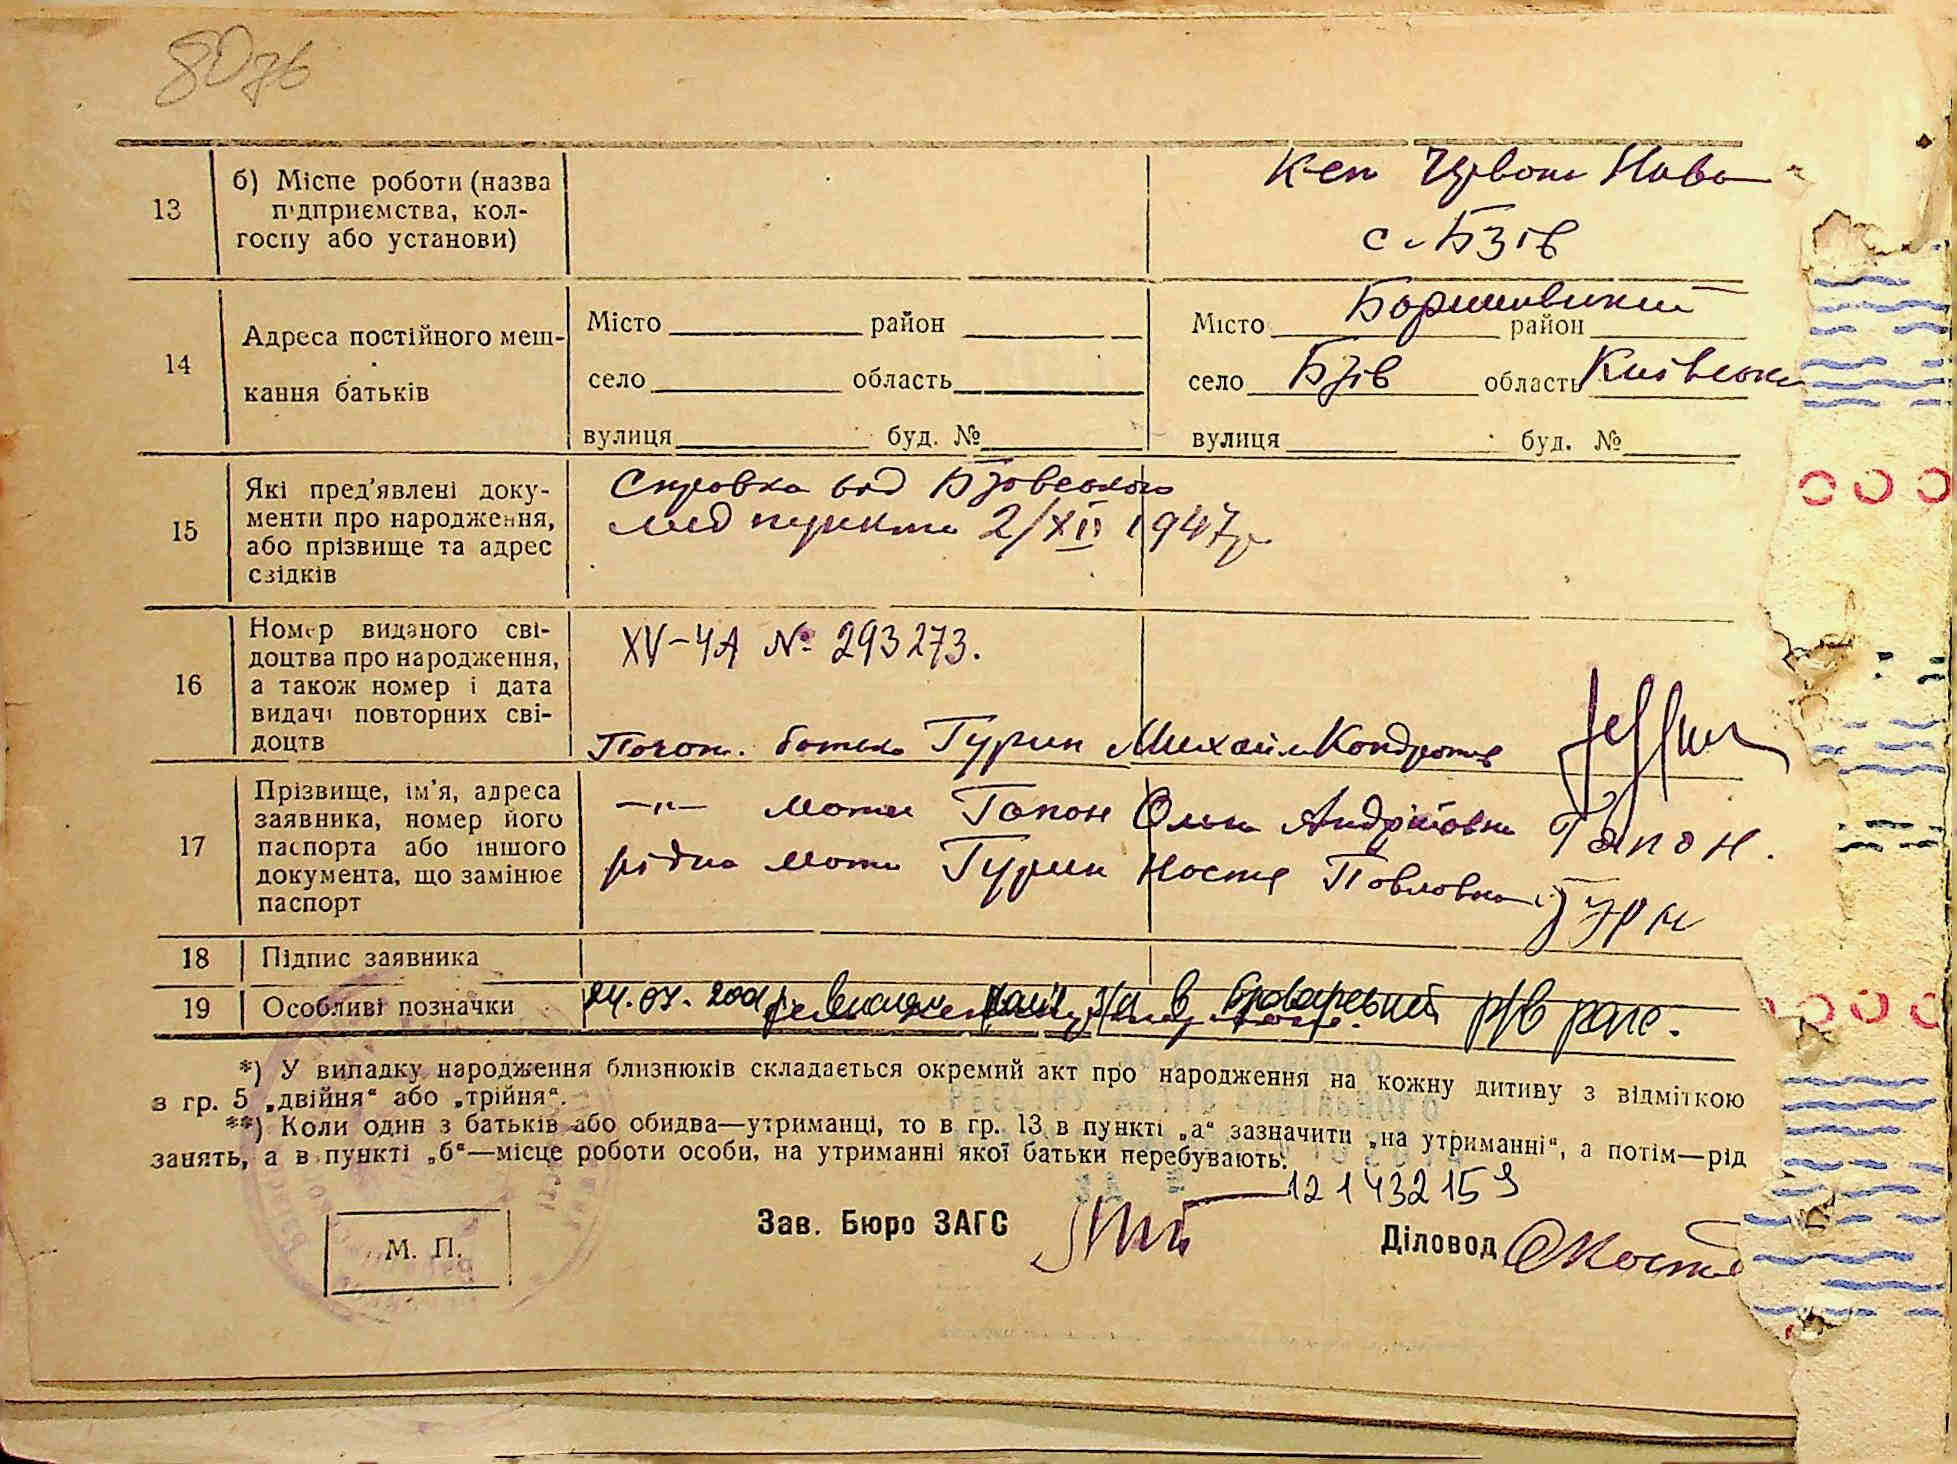 807б
13
б) Місце роботи (назва
підприємства, кол-
госпу або установи)
с. Бзів
14
Адреса постійного меш-
кання батьків
Місто район
село область
вулиця буд. №
Місто район
село Бзів область Київська
вулиця буд. №
15
Які пред'явлені доку-
менти про народження,
або прізвище та адрес
свідків
Справка від Бзовського
мед пункта 2/XII 1947р
16
Номер виданого сві-
доцтва про народження,
а також номер і дата
видачі повторних сві-
доцтв
XV-ЧА № 293273.
батько Гурин Михайло
17
Прізвище, ім'я, адреса
заявника, номер його
паспорта або іншого
документа, що замінює
паспорт
-"- мати Гапон Ольга Андріївна Гапон.
рідна мати Гурин Настя Павловна Гурн
18 Підпис заявника
19 Особливі позначки
24.07. в Броварський р/в
*) У випадку народження близнюків складається окремий акт про народження на кожну дитину з відміткою
в гр. 5 „двійня“ або „трійня“.
**) Коли один з батьків або обидва—утриманці, то в гр. 13 в пункті „а“ зазначити „на утриманні“, а потім—рід
занять, а в пункті „б“—місце роботи особи, на утриманні якої батьки перебувають.
121432159
Зав. Бюро ЗАГС
Діловод
М. П.